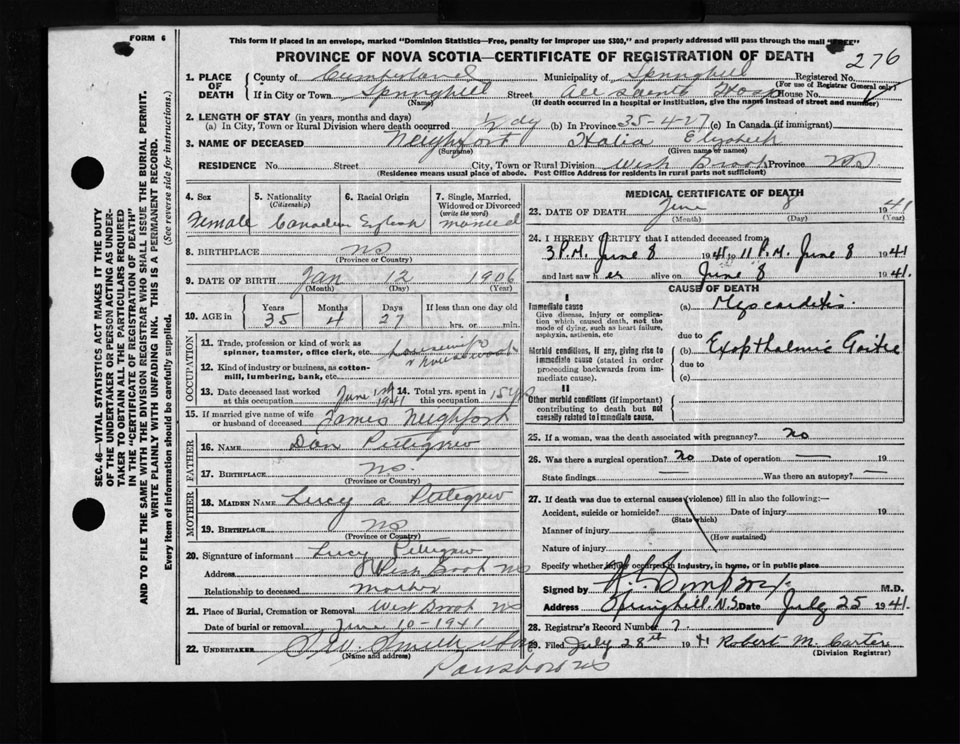 FORM 6
This form if placed in an envelope, marked "Dominion Statistics—Free, penalty for improper use $300," and properly addressed will pass through the mail "FREE"
PROVINCE OF NOVA SCOTIA—CERTIFICATE OF REGISTRATION OF DEATH
276
1. PLACE OF DEATH
County of Cumberland Municipality of Springhill Registered No.
(For use of Registrar General only)
If in City or Town Springhill Street All Saints Hosp House No.
(Name) (If death occurred in a hospital or institution, give the name instead of street and number)
2. LENGTH OF STAY (in years, months and days)
(a) In City, Town or Rural Division where death occurred ½ dy (b) In Province 35-4-27 (c) In Canada (if immigrant)
3. NAME OF DECEASED Neighfort Halia Elizabeth
(Surname) (Given name or names)
RESIDENCE No. Street City, Town or Rural Division West Brook Province NS
(Residence means usual place of abode. Post Office Address for residents in rural parts not sufficient)
SEC. 46—VITAL STATISTICS ACT MAKES IT THE DUTY
OF THE UNDERTAKER OR PERSON ACTING AS UNDER-
TAKER TO OBTAIN ALL THE PARTICULARS REQUIRED
IN THE "CERTIFICATE OF REGISTRATION OF DEATH"
AND TO FILE THE SAME WITH THE DIVISION REGISTRAR WHO SHALL ISSUE THE BURIAL PERMIT.
WRITE PLAINLY WITH UNFADING INK. THIS IS A PERMANENT RECORD.
Every item of information should be carefully supplied. (See reverse side for instructions.)
4. Sex 5. Nationality 6. Racial Origin 7. Single, Married,
(Citizenship) Widowed or Divorced
(write the word)
Female Canadian English married
8. BIRTHPLACE NS
(Province or Country)
9. DATE OF BIRTH Jan 12 1906
(Month) (Day) (Year)
10. AGE in Years Months Days If less than one day old
35 4 27 hrs. or min.
OCCUPATION
11. Trade, profession or kind of work as
spinner, teamster, office clerk, etc. housewife
12. Kind of industry or business, as cotton-
mill, lumbering, bank, etc. housework
13. Date deceased last worked at this occupation June 1st 1941 14. Total yrs. spent in this occupation 15 yrs
15. If married give name of wife
or husband of deceased James Neighfort
FATHER
16. NAME Dan Pettegrew
17. BIRTHPLACE NS.
(Province or Country)
MOTHER
18. MAIDEN NAME Lucy A. Pettegrew
19. BIRTHPLACE NS
(Province or Country)
20. Signature of informant Lucy Pettegrew
Address West Brook NS
Relationship to deceased mother
21. Place of Burial, Cremation or Removal West Brook NS
Date of burial or removal June 10-1941
22. UNDERTAKER
(Name and address)
Parrsboro NS
MEDICAL CERTIFICATE OF DEATH
23. DATE OF DEATH June 8 1941
(Month) (Day) (Year)
24. I HEREBY CERTIFY that I attended deceased from
3 P.M. June 8 1941 to 11 P.M. June 8 1941
and last saw her alive on June 8 1941.
CAUSE OF DEATH
I
Immediate cause (a) Myocarditis
Give disease, injury or complica-
tion which caused death, not the
mode of dying, such as heart failure,
asphyxia, asthenia, etc due to
Morbid conditions, if any, giving rise to (b) Exopthalmic Goitre
immediate cause (stated in order due to
proceeding backwards from im-
mediate cause). (c)
II
Other morbid conditions (if important)
contributing to death but not
causally related to immediate cause.
25. If a woman, was the death associated with pregnancy? No
26. Was there a surgical operation? No Date of operation — 19
State findings Was there an autopsy? —
27. If death was due to external causes (violence) fill in also the following:—
Accident, suicide or homicide? Date of injury 19
(State which)
Manner of injury
(How sustained)
Nature of injury
Specify whether injury occurred in industry, in home, or in public place
Signed by M.D.
Address Springhill. N.S. Date July 25 1941.
28. Registrar's Record Number 7.
29. Filed July 28th 1941 Robert M. Carter
(Division Registrar)